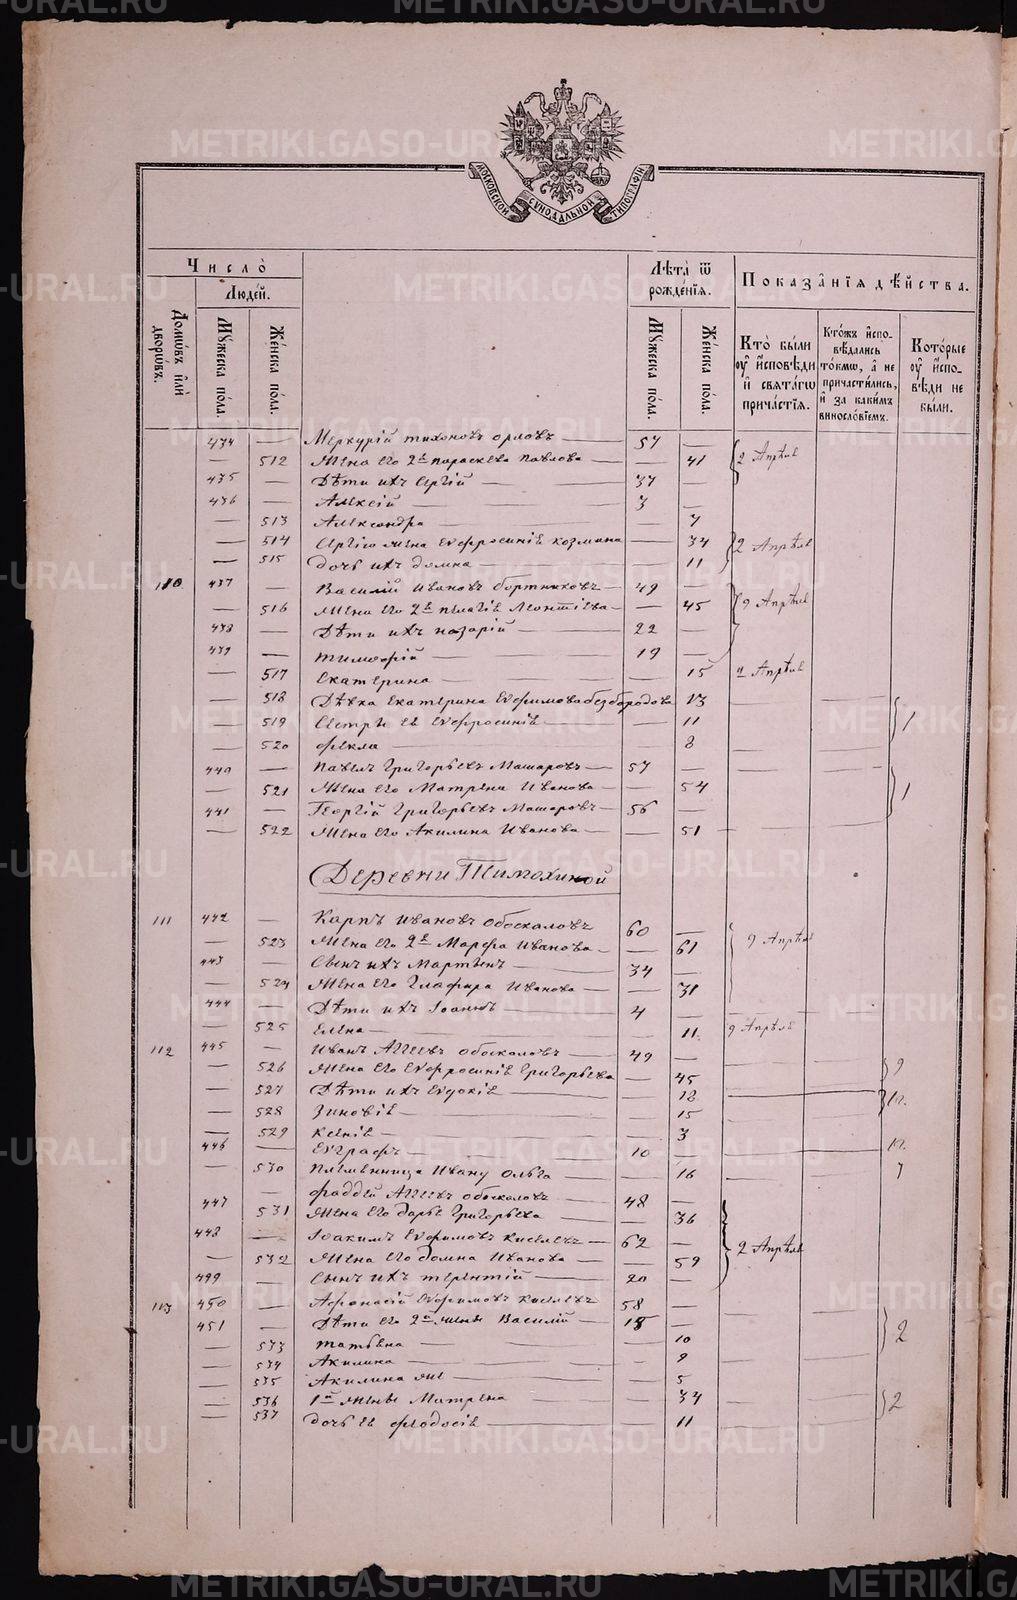 МОСКОВСКОЙ СѴНОДАЛЬНОЙ ТИПОГРАФІИ
Число̀
Людей.
Домѡвъ и҆лѝ дворѡвъ.
Мꙋжеска пола.
Женска пола.
Лѣта̀ ѿ рождéнїѧ.
Мꙋжеска пола.
Женска пола.
Показа̑нїѧ дѣ́йства.
Кто̀ бы́ли оу҆ и҆сповѣди и҆ свѧта́гѡ прича́стїѧ.
Кто́жъ и҆сповѣдались то́кмѡ, а҆ не причасти́лись, и҆ за каки́мъ винослóвїемъ.
Кото́рые оу҆ и҆сповѣди не бы́ли.
434 — Меркурій Тихоновъ Орловъ — 57 —
— 512 Жена его 2я Параскева Павлова — — 41 2 Апрѣля
435 — Дѣти ихъ Сергій — 37 —
436 — Алексій — 3 —
— 513 Александра — 7
— 514 Сергію жена Евфросинія Козмина — 34 2 Апрѣля
— 515 дочь ихъ Домна — 11
110 437 — Василій Ивановъ Бортниковъ — 49 —
— 516 Жена его 2я Пелагія Леонтіева — — 45 9 Апрѣля
438 — Дѣти ихъ Назарій — 22 —
439 — Тимофій — 19 —
— 517 Екатерина — 15 2 Апрѣля
— 518 Дѣвка Екатерина Евфимова Безбородова 13
— 519 Сестры ея Евфросинія — 11 1
— 520 Фекла — 8
440 — Павелъ Григорьевъ Машаровъ — 57 —
— 521 Жена его Матрена Иванова — — 54 1
441 — Георгій Григорьевъ Машаровъ — 56 —
— 522 Жена его Акилина Иванова — — 51
Деревни Тимохиной
111 442 — Карпъ Ивановъ Обоскаловъ 60 —
— 523 Жена его 2я Марфа Иванова — — 61 9 Апрѣля
443 — Сынъ ихъ Мартинъ — 34 —
— 524 Жена его Глафира Иванова — — 31
444 — Дѣти ихъ Іоаннъ — 4 —
— 525 Елена — — 11 9 Апрѣля
112 445 — Иванъ Агеевъ Обоскаловъ — 49 —
— 526 Жена его Евфросинія Григорьева — 45 9
— 527 Дѣти ихъ Евдокія — 18
— 528 Зиновія — 15
— 529 Ксенія — 3
446 — Евграфъ — 10 —
— 530 Племянница Ивану Ольга — 16 7
447 — Фаддей Агеевъ Обоскаловъ — 48 —
— 531 Жена его Дарья Григорьева — 36
448 — Іоакимъ Евфимовъ Киселевъ — 62 —
— 532 Жена его Домна Иванова — — 59 2 Апрѣля
449 — Сынъ ихъ Терентій — 20 —
113 450 — Афонасій Евфимовъ Киселевъ 58 —
451 — Дѣти его 2й жены Василій — 18 — 2
— 533 Татьяна — — 10
— 534 Акилина — — 9
— 535 Акилина же — — 5
— 536 1й жены Матрена — 34 2
— 537 дочь ея Феодосія — — 11